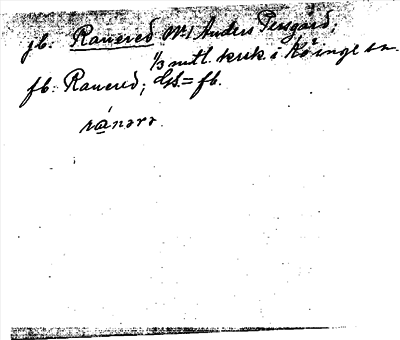 jb: Ranered No 1 Anders Persgård;
1/3 mtl. krsk. i Köinge sn.
fb: Ranered; Gsb. = fb.
ránərə.